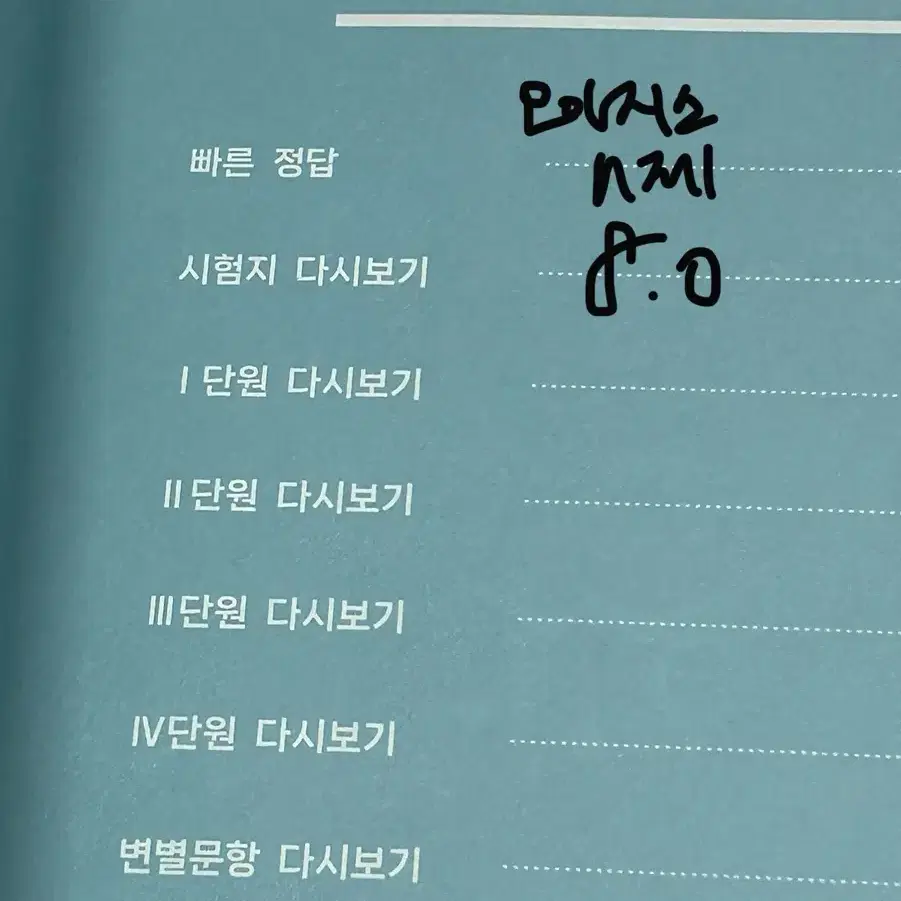 오아시스
n제
8.0
빠른 정답
시험지 다시보기
I 단원 다시보기
II 단원 다시보기
III 단원 다시보기
IV 단원 다시보기
변별문항 다시보기